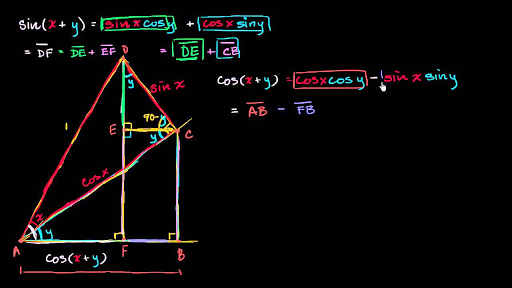 sin(x+y) = sinxcosy + cosxsiny
= DF = DE + EF = DE + CB
cos(x+y) = cosxcosy - sinxsiny
= AB - FB
D
y
sin x
1
90-y
E
y
C
cosx
x
y
A
F
B
cos(x+y)